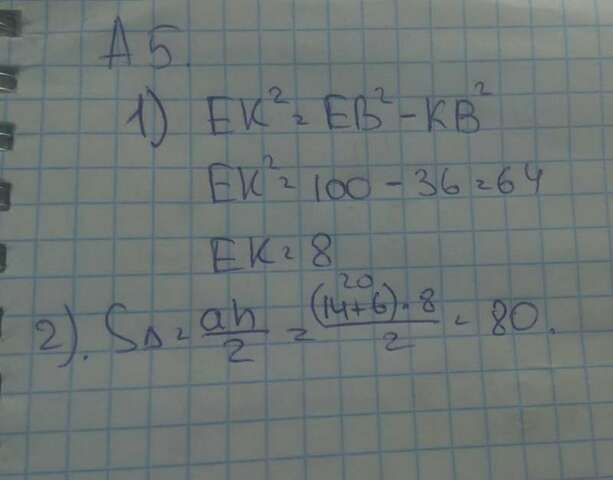 А 5.
1) EK² = EB² - KB²
EK² = 100 - 36 = 64
EK = 8
20
2). S△ = ah/2 = (14+6)·8/2 = 80.